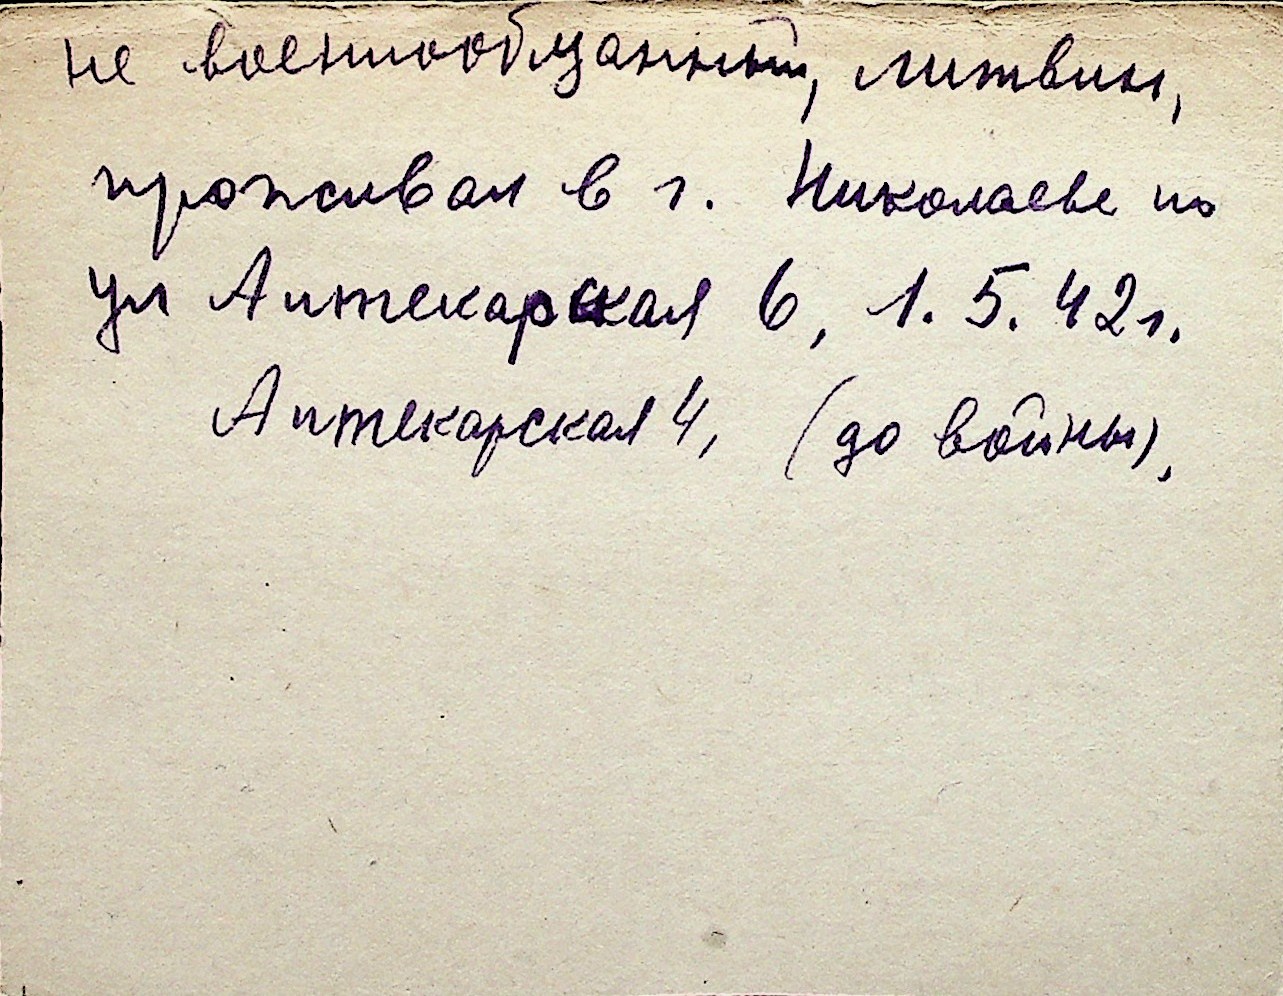 не военнообязанный, литвин,
проживал в г. Николаеве по
ул Аптекарская 6, 1.5.42г.
Аптекарская 4, (до войны),